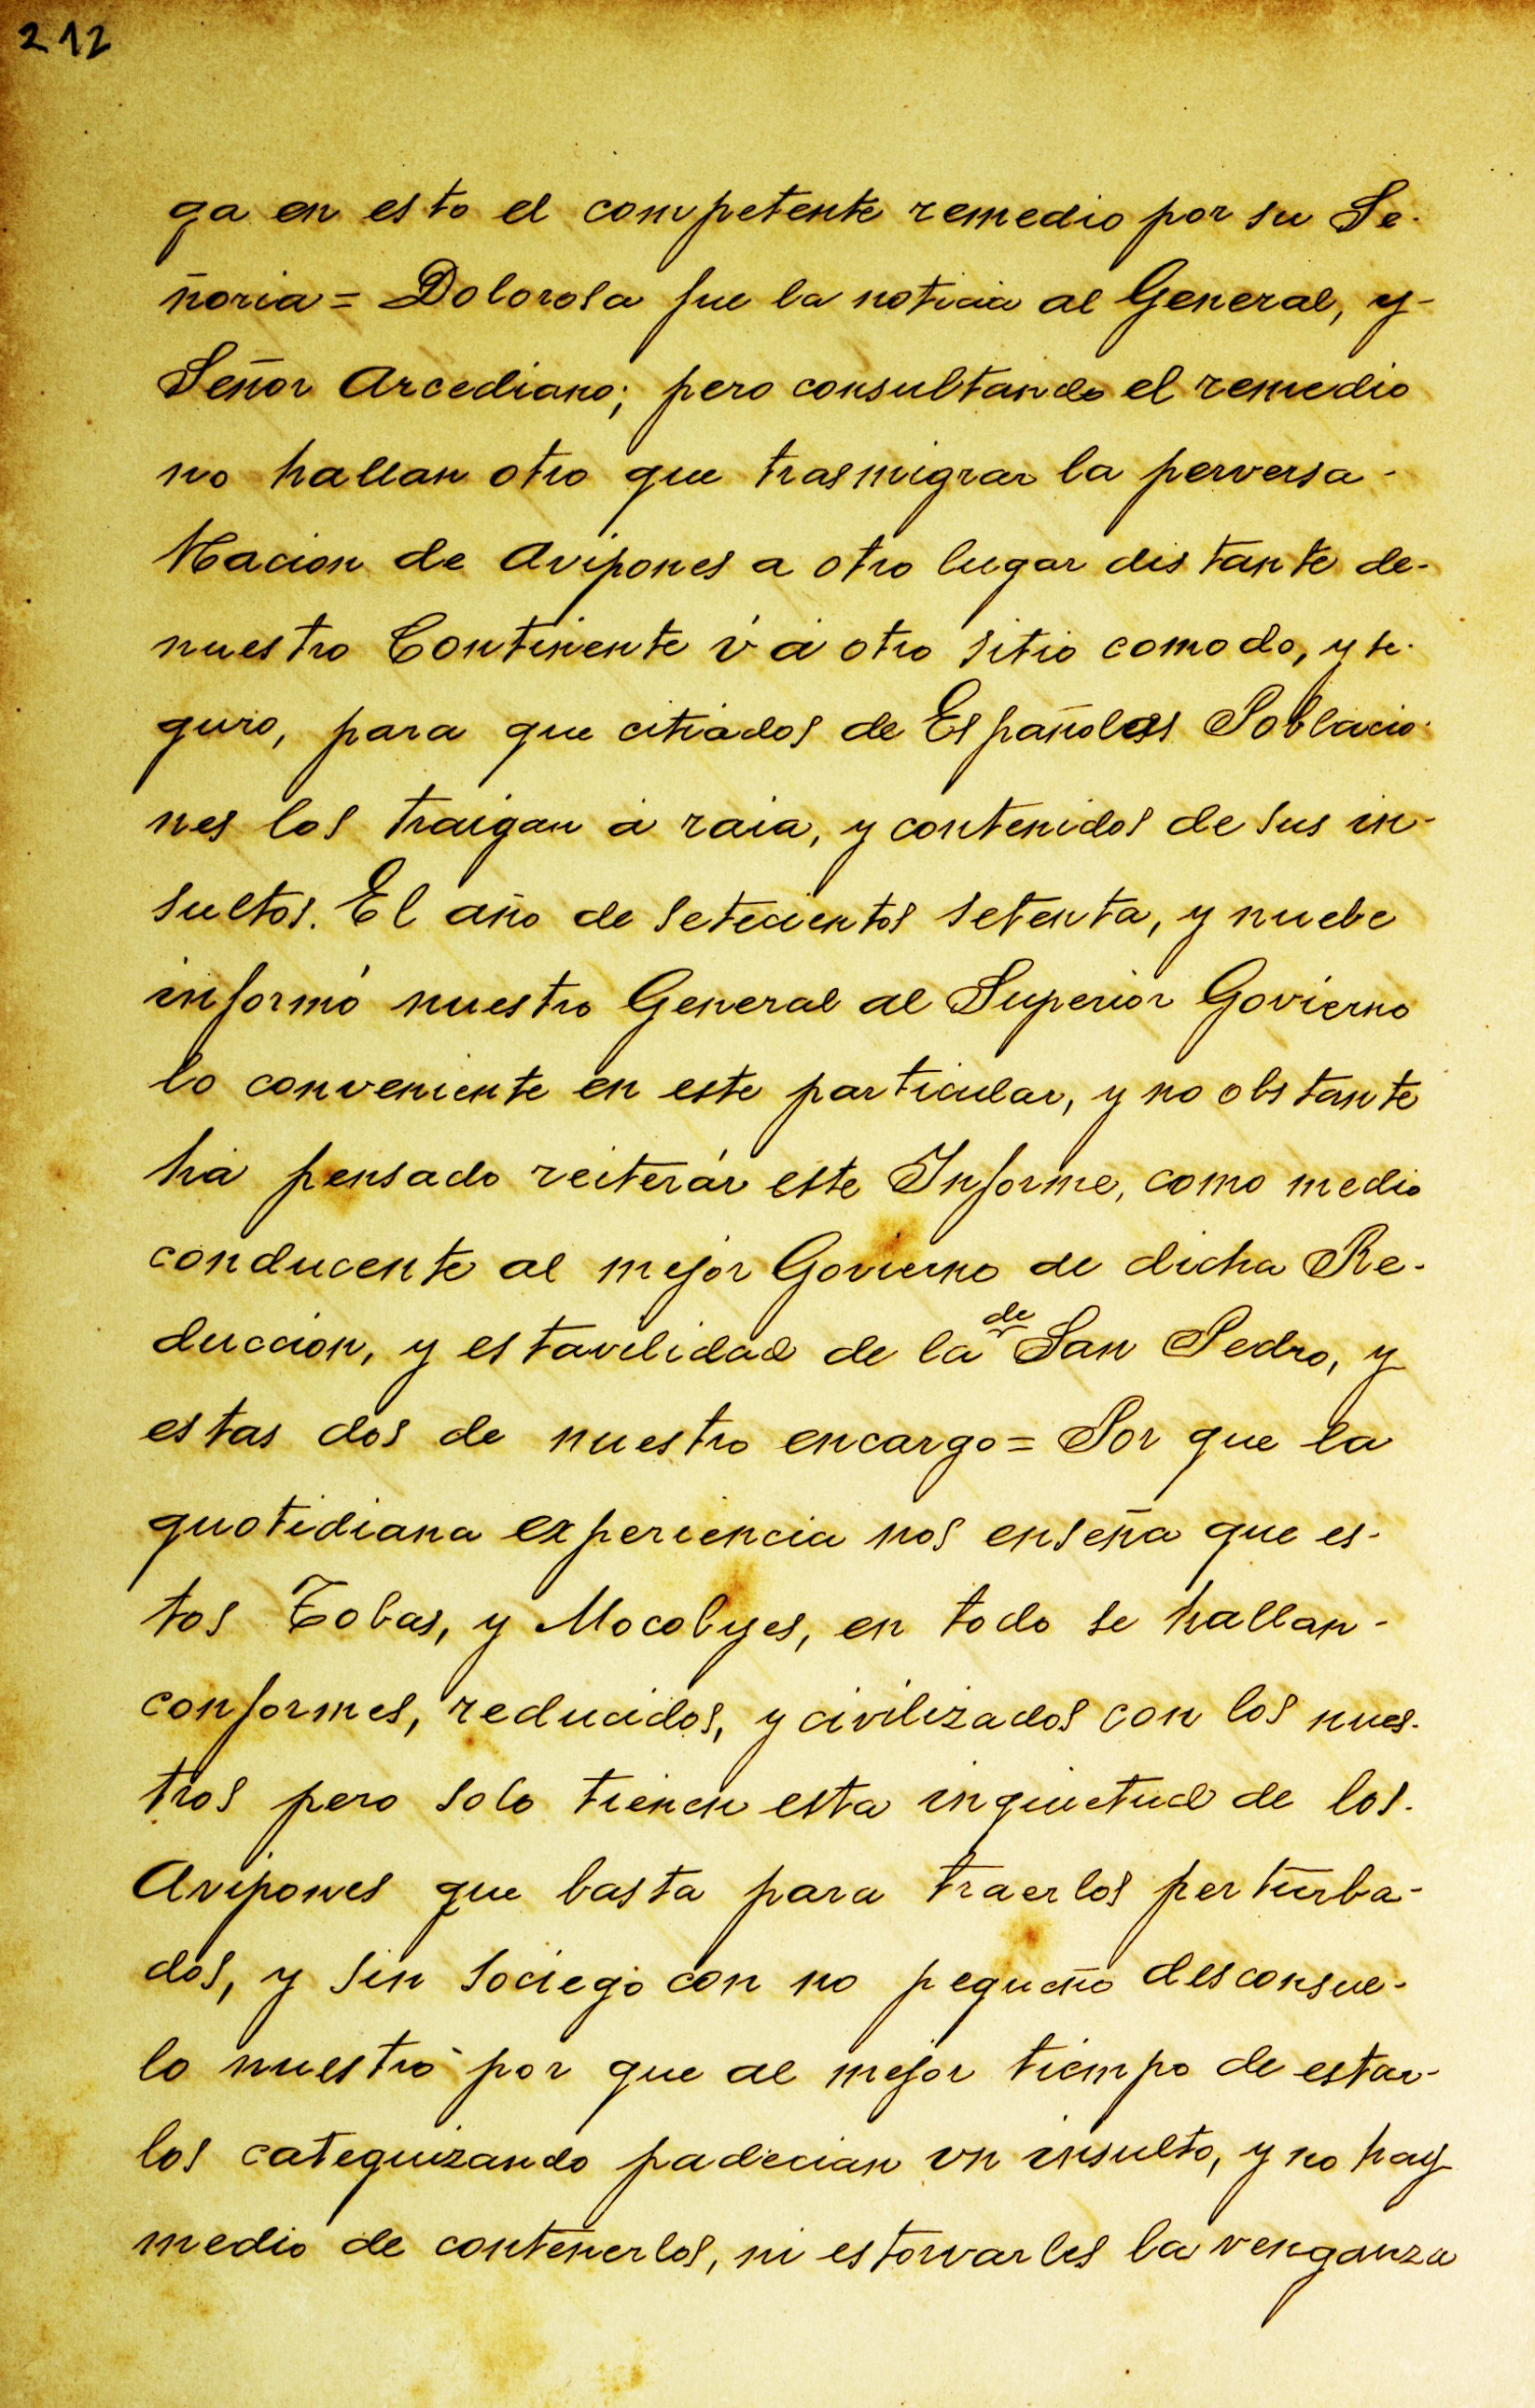 212
ga en esto el competente remedio por su Se-
ñoria = Dolorosa fue la noticia al General, y-
Señor Arcediano; pero consultando el remedio
no hallan otro que trasmigrar la perversa-
Nacion de Avipones a otro lugar distante de-
nuestro Continente v á otro sitio comodo, y se-
guro, para que citiados de Españolas Poblacio-
nes los traigan á raia, y contenidos de sus in-
sultos. El año de setecientos setenta, y nuebe
informó nuestro General al Superior Govierno
lo conveniente en este particular, y no obstante
há pensado reiterár este Informe, como medio
conducente al mejor Govierno de dicha Re-
duccion, y estavilidad de la de San Pedro, y
estas dos de nuestro encargo = Por que la
quotidiana experiencia nos enseña que es-
tos Tobas, y Mocobyes, en todo se hallan-
conformes, reducidos, y civilizados con los nues-
tros pero solo tienen esta inquietud de los-
Avipones que basta para traerlos perturba-
dos, y sin sociego con no pequeño desconsue-
lo nuestro por que al mejor tiempo de estar-
los catequizando padecian vn insulto, y no hay
medio de contenerlos, ni estorvarles la venganza